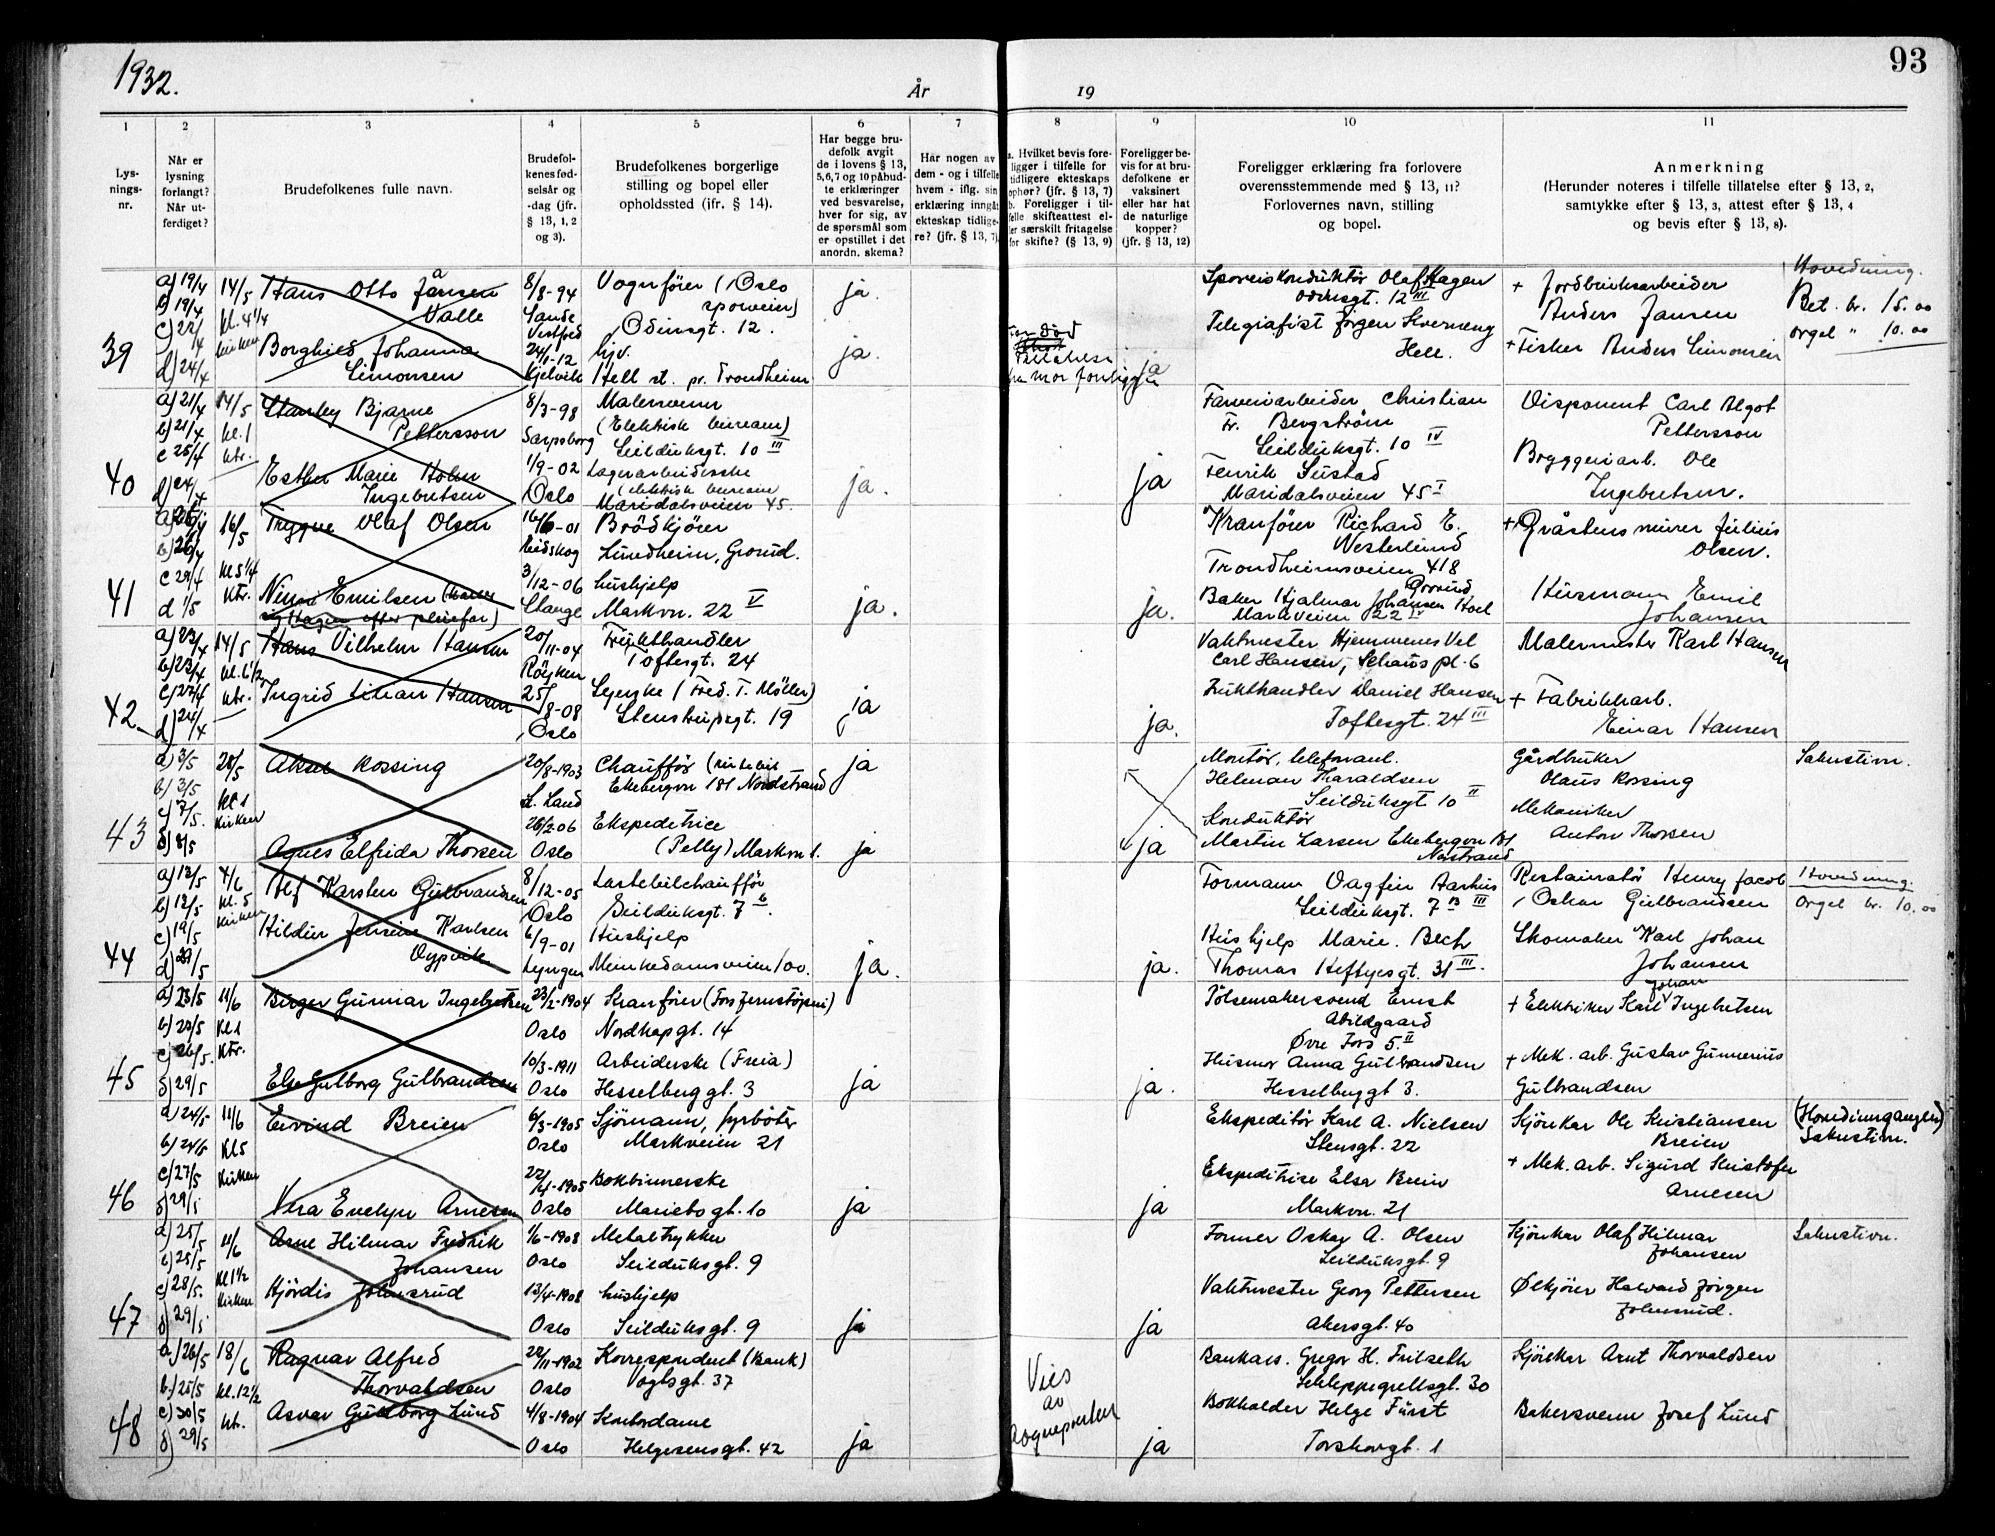 1932.
År
19
93
1
2
3
4
5
6
7
8
9
10
11
Lys-
nings-
nr.
Når er
lysning
forlangt?
Når ut-
ferdiget?
Brudefolkenes fulle navn.
Brudefol-
kenes fød-
selsår og
-dag (jfr.
§ 13, 1, 2
og 3).
Brudefolkenes borgerlige
stilling og bopel eller
opholdssted (ifr. § 14).
Har begge bru-
defolk avgit
de i lovens § 13,
5,6,7 og 10 påbud-
te erklæringer
ved besvarelse,
hver for sig, av
de spørsmål som
er opstillet i det
anordn. skema?
Har nogen av
dem - og i tilfelle
hvem - iflg. sin
erklæring inngåt
ekteskap tidlige-
re? (jfr. § 13, 7)
a. Hvilket bevis fore-
ligger i tilfelle for
tidligere ekteskaps
ophør? (jfr. § 13, 7)
b. Foreligger i til-
felle skifteattest el-
ler særskilt fritagelse
for skifte? (§ 13, 9)
Foreligger be-
vis for at bru-
defolkene er
vaksinert
eller har hat
de naturlige
kopper?
(jfr. § 13, 12)
Foreligger erklæring fra forlovere
overensstemmende med § 13, 11?
Forlovernes navn, stilling
og bopel.
Anmerkning
(Herunder noteres i tilfelle tillatelse efter § 13, 2,
samtykke efter § 13, 3, attest efter § 13, 4
og bevis efter § 13, 8).
39
a) 19/4
b) 19/4
d) 24/4
14/5
kl. 4 1/4
kirken
Hans Otto Jansen
Valle
Borghild Johanna
Simonsen
8/8-94
Sande
Vestfold
24/1-12
Kjelvik
Vognfører (Oslo
sporveier)
Odinsgt. 12.
hjv.
Hell st. pr. Trondheim
ja.
ja.
Far död
Tillatelse
fra mor foreligger
ja
Sporveiskonduktör Olaf Hagen
Odinsgt. 12 III
Telegrafist Jörgen Kverneng
Hell.
+ Jordbruksarbeider
Anders Jansen
+ Fisker Anders Simonsen
Hovedning.
Bet. kr. 15.00
orgel " 10.00
40
a) 21/4
b) 21/4
c 25/4
d) 24/4
14/5
kl. 1
ktr.
Stanley Bjarne
Pettersson
Esther Marie Holm
Ingebretsen
8/3-98
Sarpsborg
1/9-02
Oslo
Malersvenn
(Elektisk bureau)
Seilduksgt. 10 III
Lagerarbeiderske
(elektisk bureau
Maridalsveien 45.
ja.
ja
Farveriarbeider Christian
Fr. Bergström
Seilduksgt. 10 IV
Fenrik Sustad
Maridalsveien 45 I
Disponent Carl Algot
Pettersson
Bryggeriarb. Ole
Ingebretsen.
41
b) 26/4
c 29/4
d 1/5
16/5
kl 5 1/4
Ktr.
Trygve Olaf Olsen
Nina Emilsen (
Hagen efter pleiefar)
16/6-01
Eidskog
3/12-06
Stange
Brödkjörer
Lundheim, Grorud.
hushjelp
Markvn. 22 V
ja.
ja.
Kranförer Richard E.
Westerlund
Trondheimsveien 418
Grorud
Baker Hjalmar Johansen Hoel
Markveien 22
+ Gråstensmurer Julius
Olsen.
Husmann Emil
Johansen
42
a) 23/4
b) 23/4
c) 27/4
d) 24/4
14/5
kl. 6 1/2
ktr.
Hans Vilhelm Hansen
Ingrid Lilian Hansen
20/11-04
Röyken
25/8-08
Oslo
Frukthandler
Toftesgt. 24
Syerske (Fred. T. Möller)
Stenstrupsgt. 19
ja
ja.
Vaktmester Hjemmenes Vel
Carl Hansen, Schous pl. 6
Frukthandler Daniel Hansen
Toftesgt. 24 III
Malermester Karl Hansen
+ Fabrikkarb.
Einar Hansen
43
a) 3/5
b) 3/5
c) 7/5.
d) 8/5
28/5
Kl 1
Kirken
Aksel Rossing
Agnes Elfrida Thorsen
20/8-1903
S. Land
26/2-06
Oslo
Chauffør (
Ekebergvn 181 Nordstrand
Ekspeditrice
(Pelly) Markvn 1.
ja
ja
ja
Montör, telefonanl.
Helman Haraldsen
Seilduksgt 10 II
Konduktör
Martin Larsen Ekebergvn 181
Nordstrand
Gårdbruker
Olaus Rossing
Mekaniker
Anton Thorsen
Sakristien.
44
a) 12/5
b) 12/5
c) 19/5
4/6
kl. 5
kirken
Alf Karsten Gulbrandsen
Hildur Jensine Karlsen
Dypvik
8/12-05
Oslo
6/9-01
Lyngen
Lastebilchauffør
Seilduksgt. 7 b.
Hushjelp
Munkedamsveien 100.
ja.
ja.
Formann Dagfin Aarhus
Seilduksgt. 7 B III
Hushjelp Marie. Bech
Thomas Heftyesgt. 31 III.
Restauratör Henry Jacob
Oskar Gulbrandsen
Skomaker Karl Johan
Johansen
Hovedning.
orgel kr. 10.00
45
a) 23/5
b) 23/5
c) 26/5.
d) 29/5
11/6
Kl 1
Ktr.
Birger Gunnar Ingebretsen
Else Gulborg Gulbrandsen
23/2-1904
Oslo
10/3-1911
Oslo
Kranförer (Fors Jernstøperi)
Nordkapgt. 14
Arbeiderske (Freia)
Hesselberggt. 3
ja
ja.
Pölsemakersvend Ernst
Abildgaard
Øvre Foss 5. II
Husmor Anna Gulbrandsen
Hesselberggt 3.
+ Elektriker Karl Johan Ingebretsen
+ Mek. arb. Gustav Gunnerius
Gulbrandsen
46
a 24/5
b) 24/5
c) 27/5
d) 29/5
11/6
Kl 5
Kirken
Eivind Breien
Vera Evelyn Arnesen
6/3-1905
Oslo
22/4-1905
Oslo
Sjömann, fyrbøter
Markveien 21
Bokbinnerske
Mariebogt. 10
ja
ja
Ekspeditör Karl A. Nielsen
Stensgt. 22
Ekspeditrise Elsa Breien
Markvn. 21
Kjörekar Ole Kristiansen
Breien
+ Mek. arb. Sigurd Kristofer
Arnesen
(Hovedinngangen)
Sakristien.
47
a) 25/5
b) 25/5
c) 28/5.
d) 29/5
11/6
Kl 1 1/2
Kirken
Arne Hilmar Fredrik
Johansen
Hjördis Johnsrud
1/6-1908
Oslo
13/4-1908
Oslo
Metaltrykker
Seilduksgt. 9
hushjelp
Seilduksgt. 9
ja
ja
Former Oskar A. Olsen
Seilduksgt. 9
Vaktmester Georg Pettersen
Akersgt. 40
Kjörekar Olaf Hilmar
Johansen
Ølkjörer Halvard Jörgen
Johnsrud.
Sakristien.
48
a.) 26/5
b.) 25/5
c) 30/5
d) 29/5
18/6
kl. 12 1/2
ktr.
Ragnar Alfred
Thorvaldsen
Asvar Guldborg Lund
22/11-1902
Oslo
4/8-1904
Oslo
Korrespondent (Bank)
Vogtsgt. 37
Kontordame
Helgesensgt. 42
ja
Vies
av
sognepresten
ja
Bankass. Gregor H. Fritzeth
Schleppegrellsgt. 30
Bokholder Helge Fürst
Torshovgt. 1
Kjörekar Arnt Thorvaldsen
Bakersvenn Josef Lund